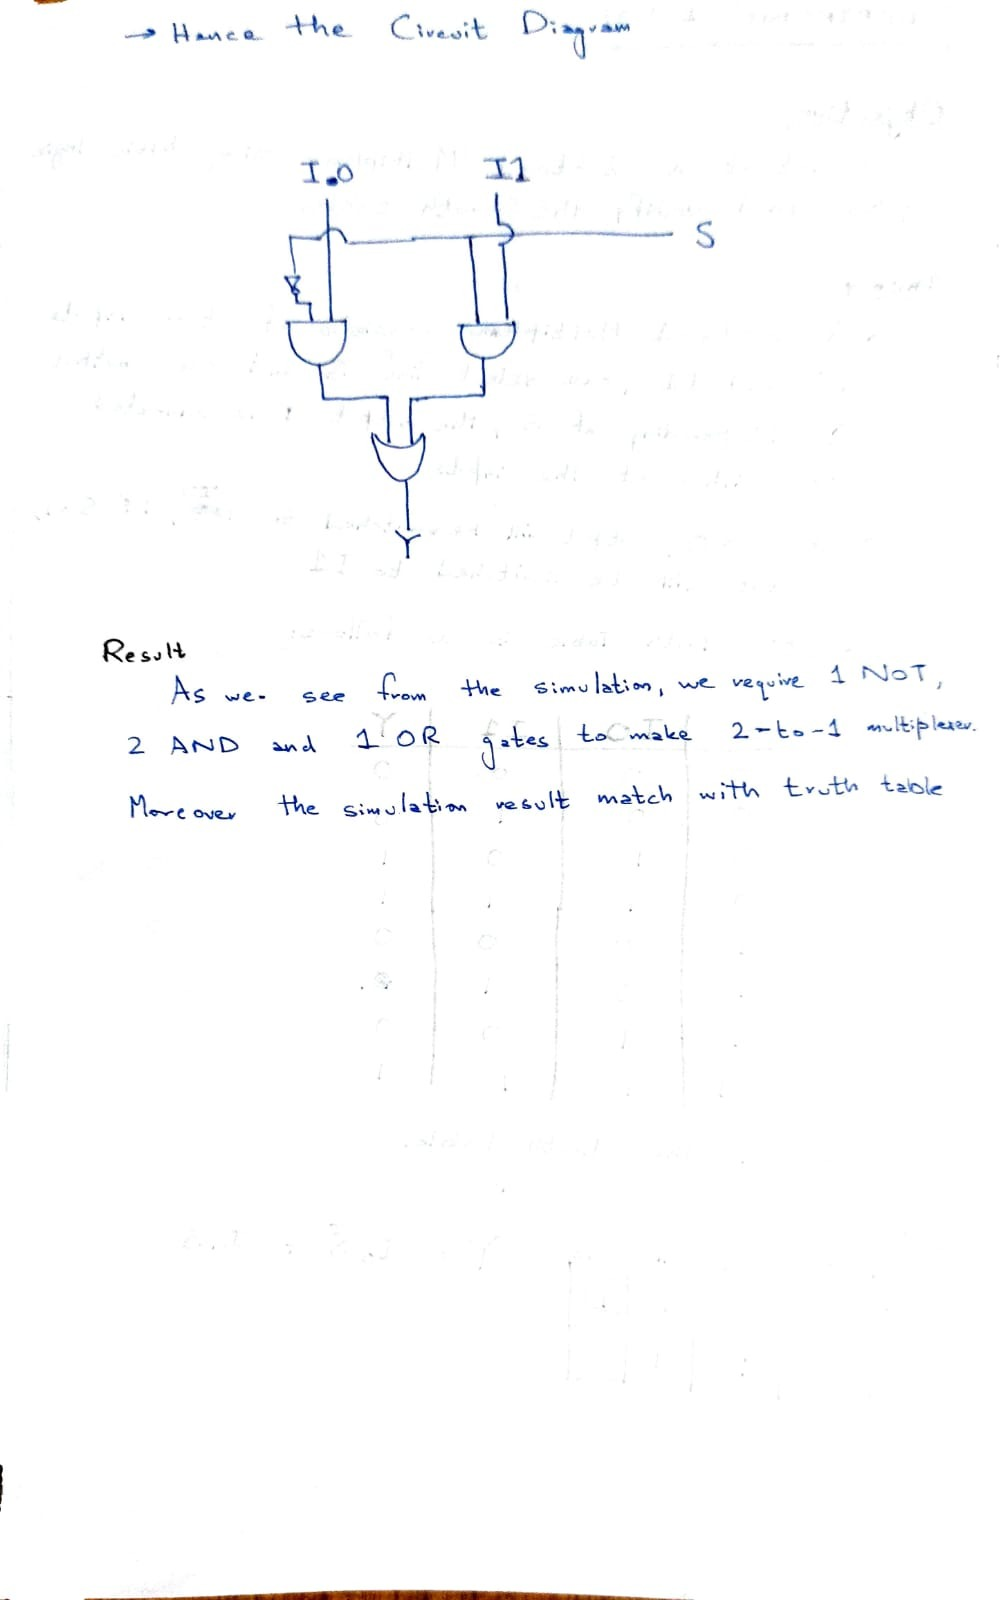 → Hence the Circuit Diagram
I0 I1
S
Y
Result
As we see from the simulation, we require 1 NOT,
2 AND and 1 OR gates to make 2-to-1 multiplexer.
Moreover the simulation result match with truth table